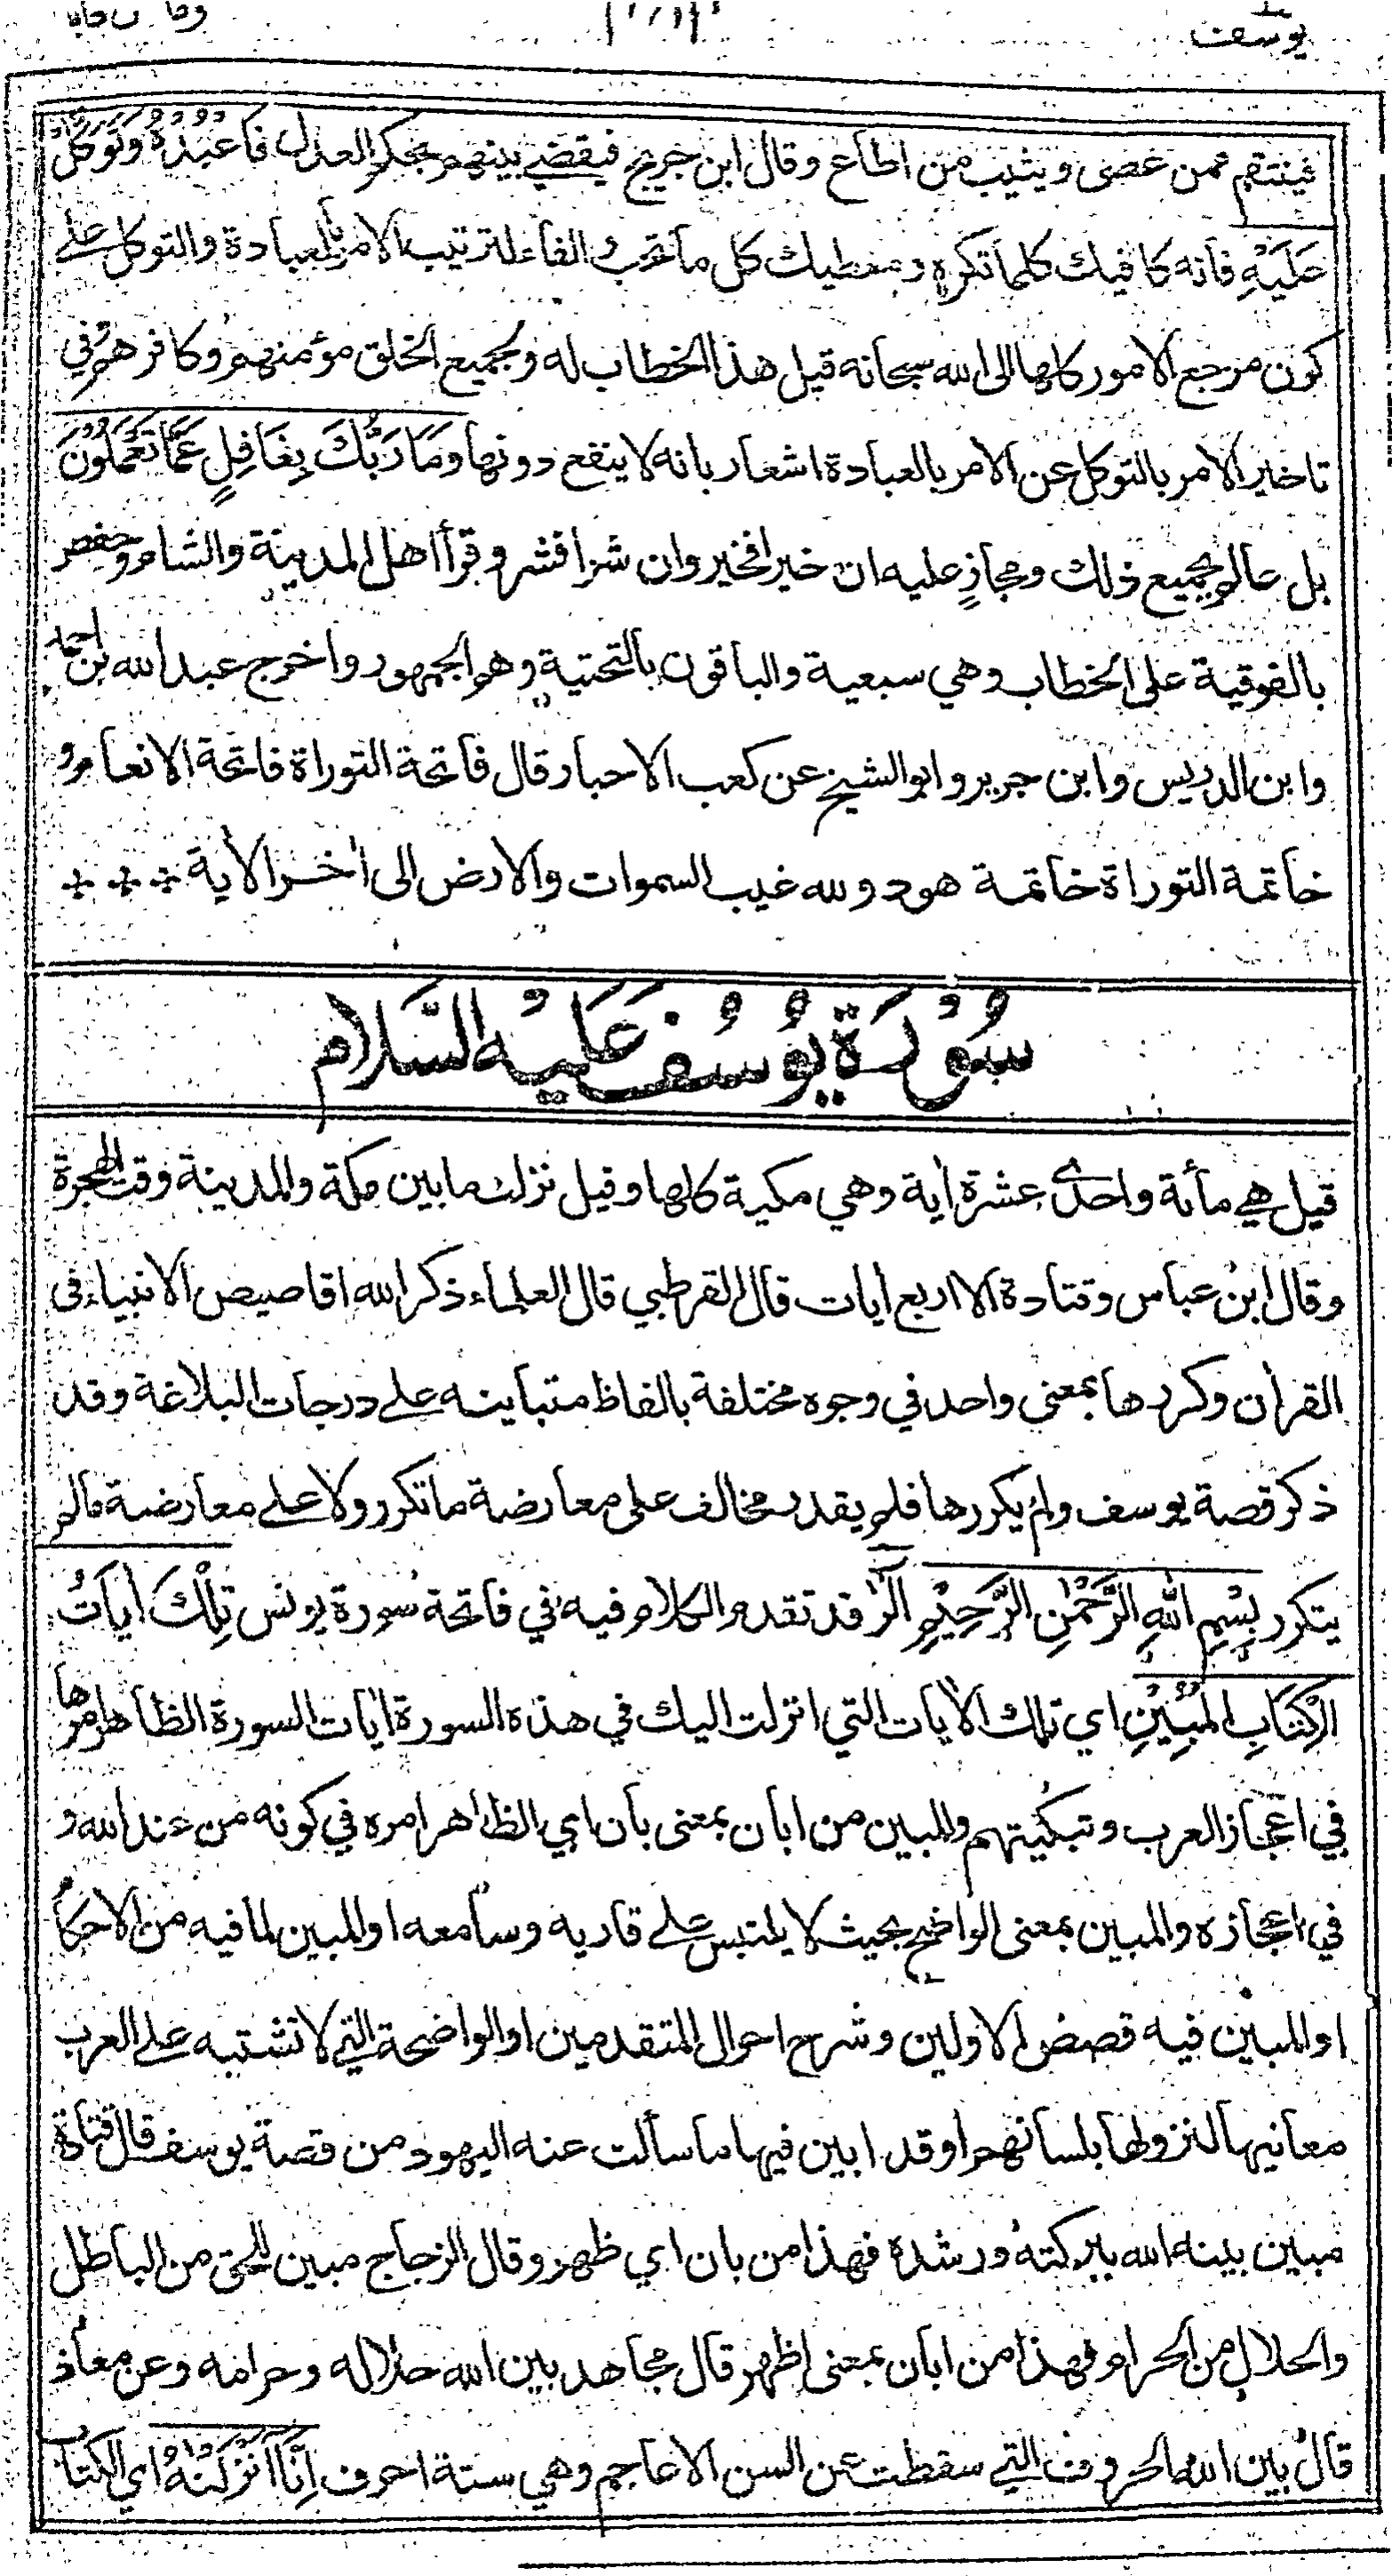 يوسف
فينتقم ممن عصى ويثيب من اطاع وقال ابن جريج فيقضي بينهم بحكم العدل فَاعْبُدْهُ وَتَوَكَّلْ
عَلَيْهِ فانه كافيك كلما تكره ومعطيك كل ما تحب والفاء لترتيب الامر بالعبادة والتوكل على
كون مرجع الامور كلها الى الله سبحانه قيل هذا الخطاب له ولجميع الخلق مؤمنهم وكافرهم وفي
تاخير الامر بالتوكل عن الامر بالعبادة اشعار بانه لا ينفع دونها وَمَا رَبُّكَ بِغَافِلٍ عَمَّا تَعْمَلُوْنَ
بل عالم بجميع ذلك ومجازٍ عليه ان خيرا فخير وان شرا فشر وقرأ اهل المدينة والشام وحفص
بالفوقية على الخطاب وهي سبعية والباقون بالتحتية وهو الجمهور واخرج عبد الله بن احمد
وابن الدريس وابن جرير وابو الشيخ عن كعب الاحبار قال فاتحة التوراة فاتحة الانعام و
خاتمة التوراة خاتمة هود ولله غيب السموات والارض الى اٰخر الاٰية
سُوْرَةُ يُوْسُفَ عَلَيْهِ السَّلَام
قيل هي مأئة واحدى عشرة اٰية وهي مكية كلها وقيل نزلت ما بين مكة والمدينة وقت الهجرة
وقال ابن عباس وقتادة الا اربع اٰيات قال القرطبي قال العلماء ذكر الله اقاصيص الانبياء في
القراٰن وكررها بمعنى واحد في وجوه مختلفة بالفاظ متباينه على درجات البلاغة وقد
ذكر قصة يوسف ولم يكررها فلم يقدر مخالف على معارضة ما تكرر ولا على معارضة مالم
يتكرر بِسْمِ اللهِ الرَّحْمٰنِ الرَّحِيْمِ الٓرٰ قد تقدم الكلام فيه في فاتحة سورة يونس تِلْكَ اٰيَاتُ
الْكِتَابِ الْمُبِيْنِ اي تلك الاٰيات التي انزلت اليك في هذه السورة اٰيات السورة الظاهر امرها
في اعجاز العرب وتبكيتهم والمبين من ابان بمعنى بان اي الظاهر امره في كونه من عند الله و
في اعجازه والمبين بمعنى الواضح بحيث لا يلتبس على قاريه وسامعه او المبين لما فيه من الاحكام
او المبين فيه قصص الاولين وشرح احوال المتقدمين او الواضحة التي لا تشتبه على العرب
معانيها لنزولها بلسانهم او قد ابين فيها ما سألت عنه اليهود من قصة يوسف قال قتادة
مبين بينه الله ببركته ورشده فهذا من بان اي ظهر وقال الزجاج مبين للحق من الباطل
والحلال من الحرام فهذا من ابان بمعنى اظهر قال مجاهد بين الله حلاله وحرامه وعن معاذ
قال بين الله الحروف التي سقطت عن السن الاعاجم وهي ستة احرف اِنَّا اَنْزَلْنٰهُ اي الكتاب